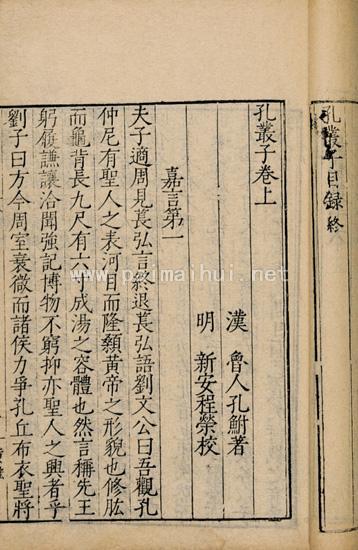 孔叢子目録終
孔叢子卷上
漢　魯人孔鮒著
明　新安程榮校
嘉言第一
夫子適周見萇弘言終退萇弘語劉文公曰吾觀孔
仲尼有聖人之表河目而隆顙黃帝之形貌也修肱
而龜背長九尺有六寸成湯之容體也然言稱先王
躬履謙讓洽聞強記博物不窮抑亦聖人之興者乎
劉子曰方今周室衰微而諸侯力爭孔丘布衣聖將